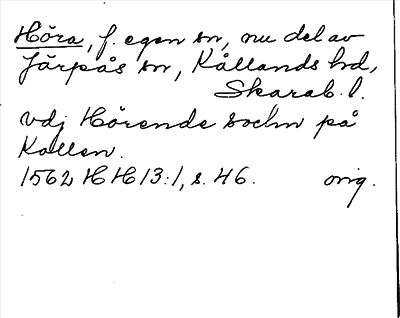 Höra, f. egen sn, nu del av
Järpås sn, Kållands hd,
Skarab. l.
vdj Hörende sochn på
Kallen.
1562 HH 13:1, s. 46. orig.